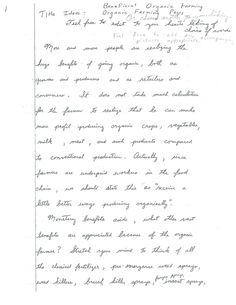 1
Beneficial Organic Farming
Title Ideas: Organic Farming Pays
Feel free to edit to your hearts liking of
choice of words
Feel free to add
More and more people are realizing the
huge benefits of going organic, both as
growers and producers and as retailers and
consumers. It does not take much calculation
for the farmer to realize that he can make
more profit producing organic crops, vegetable,
milk, meat, and such products compared
to conventional production. Actually, since
farmers are underpaid workers in the food
chain, we should state this as "receive a
little better wage producing organically".
Monetary benefits aside, what other vast
benefits are appreciated because of the organic
farmer? Stretch your mind to think of all
the chemical fertilizer, pre-emergence weed sprays,
weed killers, brush kills, sprays, insect sprays,